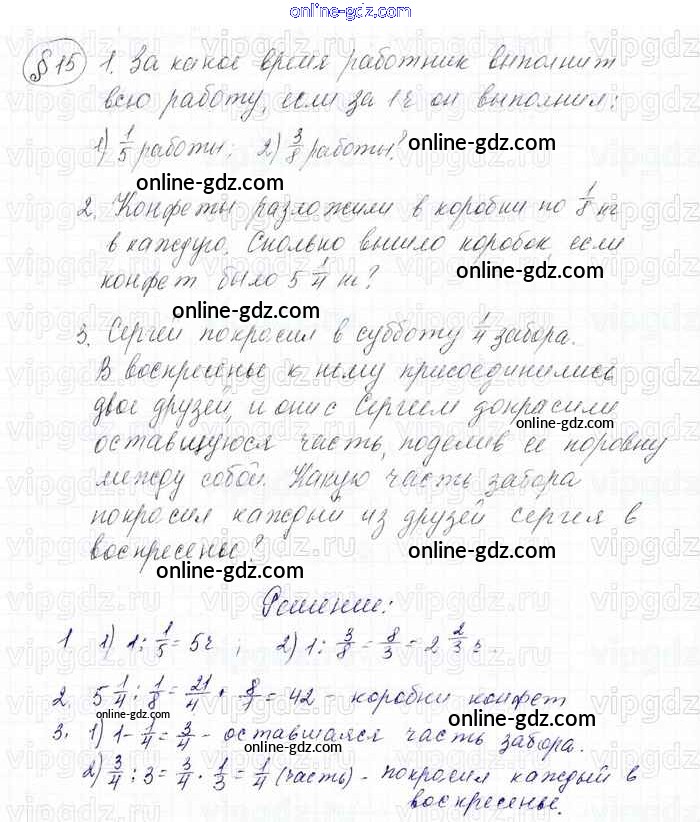 online-gdz.com
§ 15 1. За какое время работник выполнит
всю работу, если за 1ч он выполнил:
online-gdz.com
1) 1/5 работы; 2) 3/8 работы?
online-gdz.com
2. Конфеты разложили в коробки по 1/8 кг
в каждую. Сколько вышло коробок, если
online-gdz.com
конфет было 5 1/4 кг?
online-gdz.com
3. Сергей покрасил в субботу 1/4 забора.
online-gdz.com
В воскресенье к нему присоединились
двое друзей, и они с Сергеем докрасили
online-gdz.com
оставшуюся часть, поделив её поровну
между собой. Какую часть забора
online-gdz.com
покрасил каждый из друзей Сергея в
воскресенье?
online-gdz.com
online-gdz.com
Решение:
1 1) 1 : 1/5 = 5ч ; 2) 1 : 3/8 = 8/3 = 2 2/3 ч.
online-gdz.com
2. 5 1/4 : 1/8 = 21/4 · 8/1 = 42 - коробки конфет
online-gdz.com
online-gdz.com
3. 1) 1 - 1/4 = 3/4 - оставшаяся часть забора.
2) 3/4 : 3 = 3/4 · 1/3 = 1/4 (часть) - покрасил каждый в
online-gdz.com
воскресенье.
online-gdz.com